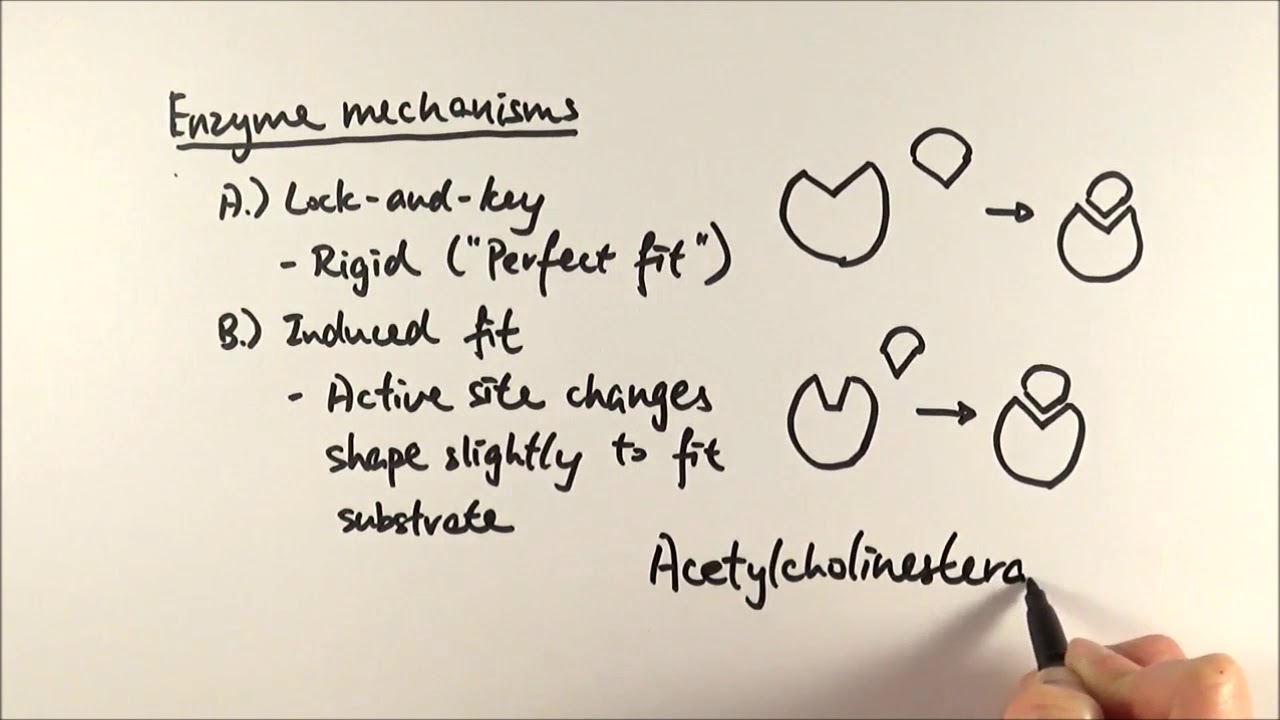 Enzyme mechanisms
A.) Lock-and-key
- Rigid ("Perfect fit")
B.) Induced fit
- Active site changes
shape slightly to fit
substrate
Acetylcholinestera